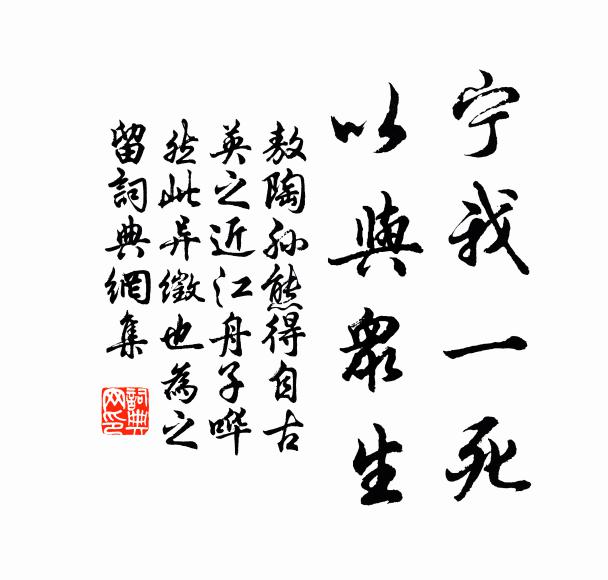 宁我一死
以與眾生
敖陶孙熊得自古
英之近江舟子哗
然此异徵也為之
留詞典網集
詞典网印